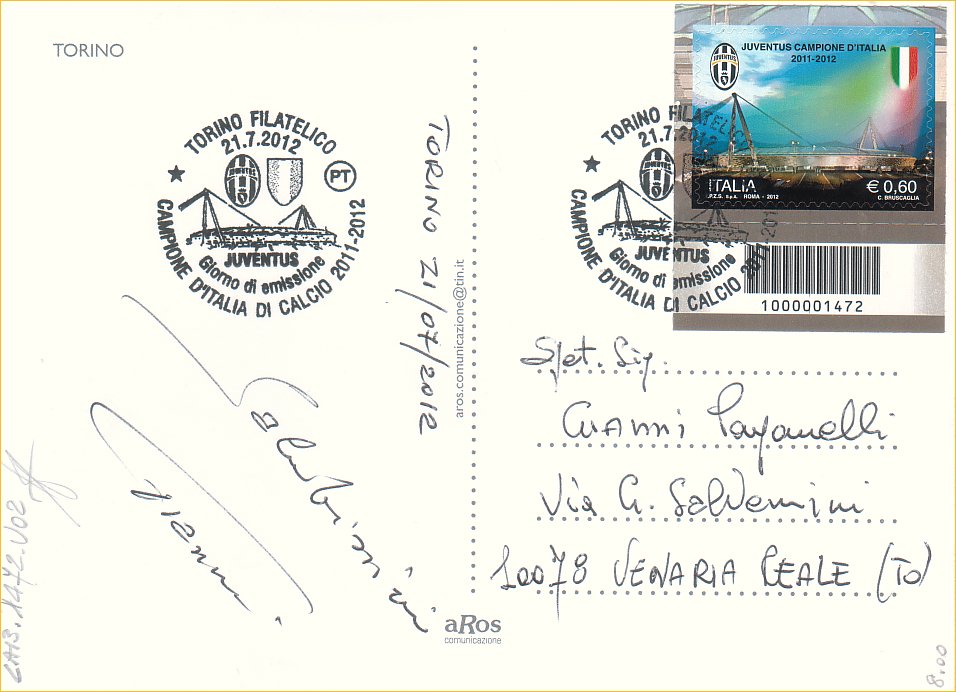 TORINO
TORINO FILATELICO
21.7.2012
JUVENTUS
PT
JUVENTUS
Giorno di emissione
CAMPIONE D'ITALIA DI CALCIO 2011-2012
TORINO 21/07/2012
aros.comunicazione@tin.it
Gianni
aRos
comunicazione
JUVENTUS CAMPIONE D'ITALIA
2011-2012
JUVENTUS
ITALIA
€ 0,60
I.P.Z.S. S.p.A. ROMA - 2012
C. BRUSCAGLIA
TORINO FILATELICO
21.7.2012
JUVENTUS
Giorno di emissione
CAMPIONE D'ITALIA DI CALCIO 2011-2012
1000001472
Spet. Sig.
Gianni Paganelli
Via G. Salvemini
10078 VENARIA REALE (TO)
8.00